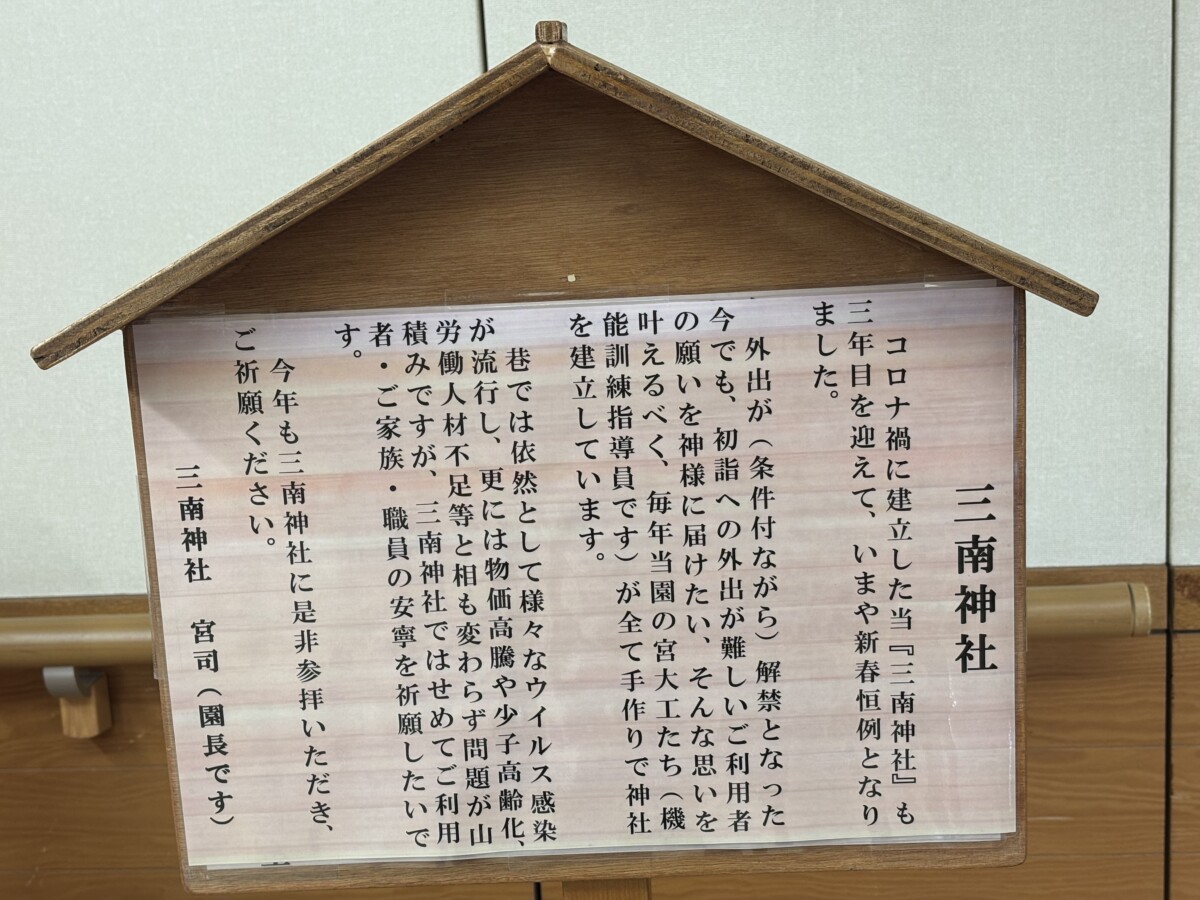 三南神社
コロナ禍に建立した当『三南神社』も
三年目を迎えて、いまや新春恒例となり
ました。
外出が（条件付ながら）解禁となった
今でも、初詣への外出が難しいご利用者
の願いを神様に届けたい、そんな思いを
叶えるべく、毎年当園の宮大工たち（機
能訓練指導員です）が全て手作りで神社
を建立しています。
巷では依然として様々なウイルス感染
が流行し、更には物価高騰や少子高齢化、
労働人材不足等と相も変わらず問題が山
積みですが、三南神社ではせめてご利用
者・ご家族・職員の安寧を祈願したいで
す。
今年も三南神社に是非参拝いただき、
ご祈願ください。
三南神社　宮司（園長です）